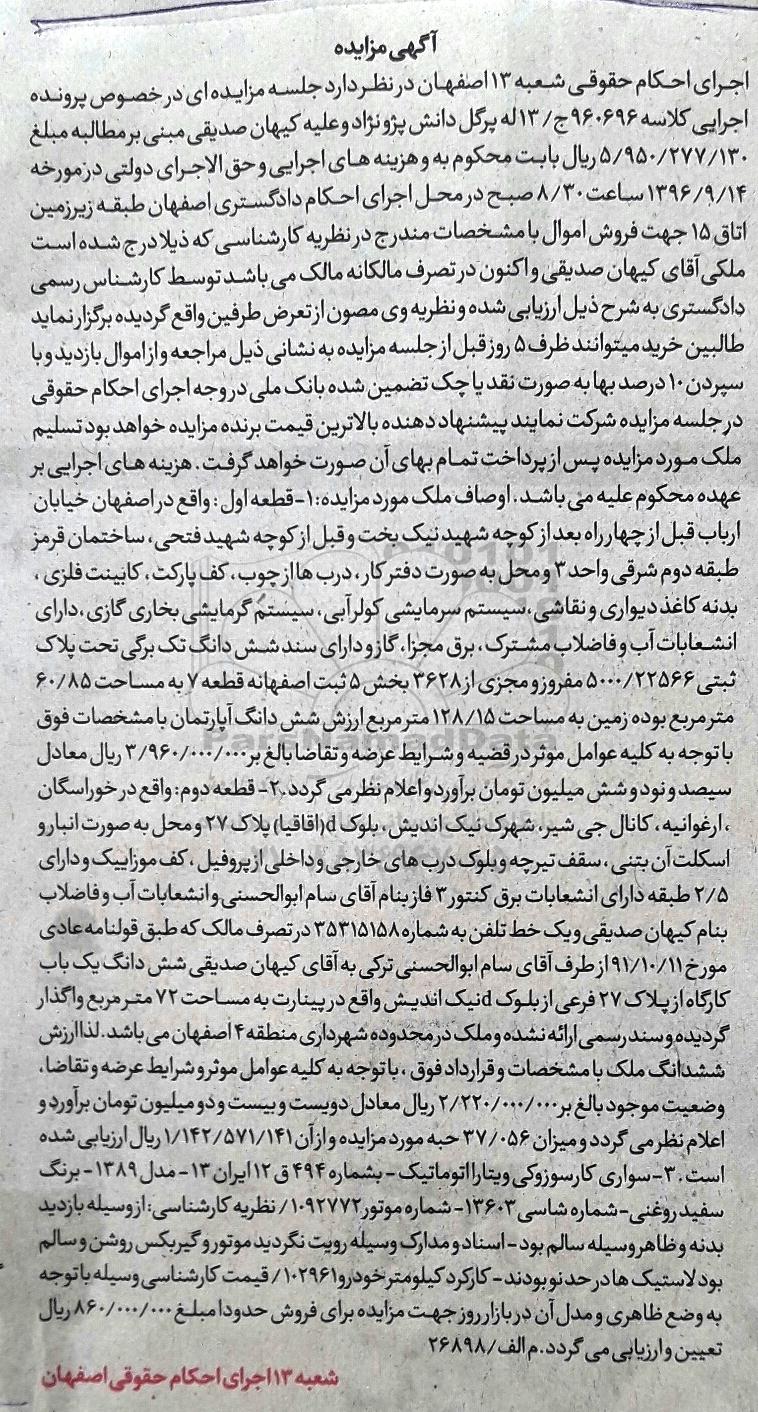 آگهی مزایده
اجرای احکام حقوقی شعبه ۱۳ اصفهان در نظر دارد جلسه مزایده ای در خصوص پرونده
اجرایی کلاسه ۹۶۰۶۹۶ج/۱۳ له پرگل دانش پژو نژاد وعلیه کیهان صدیقی مبنی بر مطالبه مبلغ
۵/۹۵۰/۲۷۷/۱۳۰ ریال بابت محکوم به و هزینه های اجرایی وحق الاجرای دولتی در مورخه
۱۳۹۶/۹/۱۴ ساعت ۸/۳۰ صبح در محل اجرای احکام دادگستری اصفهان طبقه زیرزمین
اتاق ۱۵ جهت فروش اموال با مشخصات مندرج در نظریه کارشناسی که ذیلا درج شده است
ملکی آقای کیهان صدیقی و اکنون در تصرف مالکانه مالک می باشد توسط کارشناس رسمی
دادگستری به شرح ذیل ارزیابی شده و نظریه وی مصون از تعرض طرفین واقع گردیده برگزار نماید
طالبین خرید میتوانند ظرف ۵ روز قبل از جلسه مزایده به نشانی ذیل مراجعه و از اموال بازدید و با
سپردن ۱۰ درصد بها به صورت نقد یا چک تضمین شده بانک ملی در وجه اجرای احکام حقوقی
در جلسه مزایده شرکت نمایند پیشنهاد دهنده بالاترین قیمت برنده مزایده خواهد بود تسلیم
ملک مورد مزایده پس از پرداخت تمام بهای آن صورت خواهد گرفت. هزینه های اجرایی بر
عهده محکوم علیه می باشد. اوصاف ملک مورد مزایده: ۱-قطعه اول: واقع در اصفهان خیابان
ارباب قبل از چهار راه بعد از کوچه شهید نیک بخت و قبل از کوچه شهید فتحی، ساختمان قرمز
طبقه دوم شرقی واحد ۳ و محل به صورت دفتر کار، درب ها از چوب، کف پارکت، کابینت فلزی،
بدنه کاغذ دیواری و نقاشی، سیستم سرمایشی کولر آبی، سیستم گرمایشی بخاری گازی، دارای
انشعابات آب و فاضلاب مشترک، برق مجزا، گاز و دارای سند شش دانگ تک برگی تحت پلاک
ثبتی ۵۰۰۰/۲۲۵۶۶ مفروز و مجزی از ۳۶۲۸ بخش ۵ ثبت اصفهانه قطعه ۷ به مساحت ۶۰/۸۵
متر مربع بوده زمین به مساحت ۱۲۸/۱۵ متر مربع ارزش شش دانگ آپارتمان با مشخصات فوق
با توجه به کلیه عوامل موثر در قضیه و شرایط عرضه و تقاضا بالغ بر ۳/۹۶۰/۰۰۰/۰۰۰ ریال معادل
سیصد و نود و شش میلیون تومان برآورد و اعلام نظر می گردد. ۲- قطعه دوم: واقع در خوراسگان
، ارغوانیه، کانال جی شیر، شهرک نیک اندیش، بلوک d(اقاقیا) پلاک ۲۷ و محل به صورت انبار و
اسکلت آن بتنی، سقف تیرچه و بلوک درب های خارجی و داخلی از پروفیل، کف موزاییک و دارای
۲/۵ طبقه دارای انشعابات برق کنتور ۳ فاز بنام آقای سام ابوالحسنی و انشعابات آب و فاضلاب
بنام کیهان صدیقی و یک خط تلفن به شماره ۳۵۳۱۵۱۵۸ در تصرف مالک که طبق قولنامه عادی
مورخ ۹۱/۱۰/۱۱ از طرف آقای سام ابوالحسنی ترکی به آقای کیهان صدیقی شش دانگ یک باب
کارگاه از پلاک ۲۷ فرعی از بلوک d نیک اندیش واقع در پینارت به مساحت ۷۲ متر مربع واگذار
گردیده و سند رسمی ارائه نشده و ملک در محدوده شهرداری منطقه ۴ اصفهان می باشد. لذا ارزش
ششدانگ ملک با مشخصات و قرارداد فوق، با توجه به کلیه عوامل موثر و شرایط عرضه و تقاضا،
وضعیت موجود بالغ بر ۲/۲۲۰/۰۰۰/۰۰۰ ریال معادل دویست و بیست و دو میلیون تومان برآورد و
اعلام نظر می گردد و میزان ۳۷/۰۵۶ حبه مورد مزایده و از آن ۱/۱۴۲/۵۷۱/۱۴۱ ریال ارزیابی شده
است. ۳-سواری کار سوزوکی ویتارا اتوماتیک - بشماره ۴۹۴ ق ۱۲ ایران ۱۳- مدل ۱۳۸۹- برنگ
سفید روغنی-شماره شاسی ۱۳۶۰۳- شماره موتور ۱۰۹۲۷۷۲/ نظریه کارشناسی: از وسیله بازدید
بدنه و ظاهر وسیله سالم بود- اسناد و مدارک وسیله رویت نگردید موتور و گیربکس روشن و سالم
بود لاستیک ها در حد نو بودند- کارکرد کیلومتر خودرو ۱۰۲۹۶۱/ قیمت کارشناسی وسیله با توجه
به وضع ظاهری و مدل آن در بازار روز جهت مزایده برای فروش حدودا مبلغ ۸۶۰/۰۰۰/۰۰۰ ریال
تعیین و ارزیابی می گردد. م الف/۲۶۸۹۸
شعبه ۱۳ اجرای احکام حقوقی اصفهان
ParsNamadData